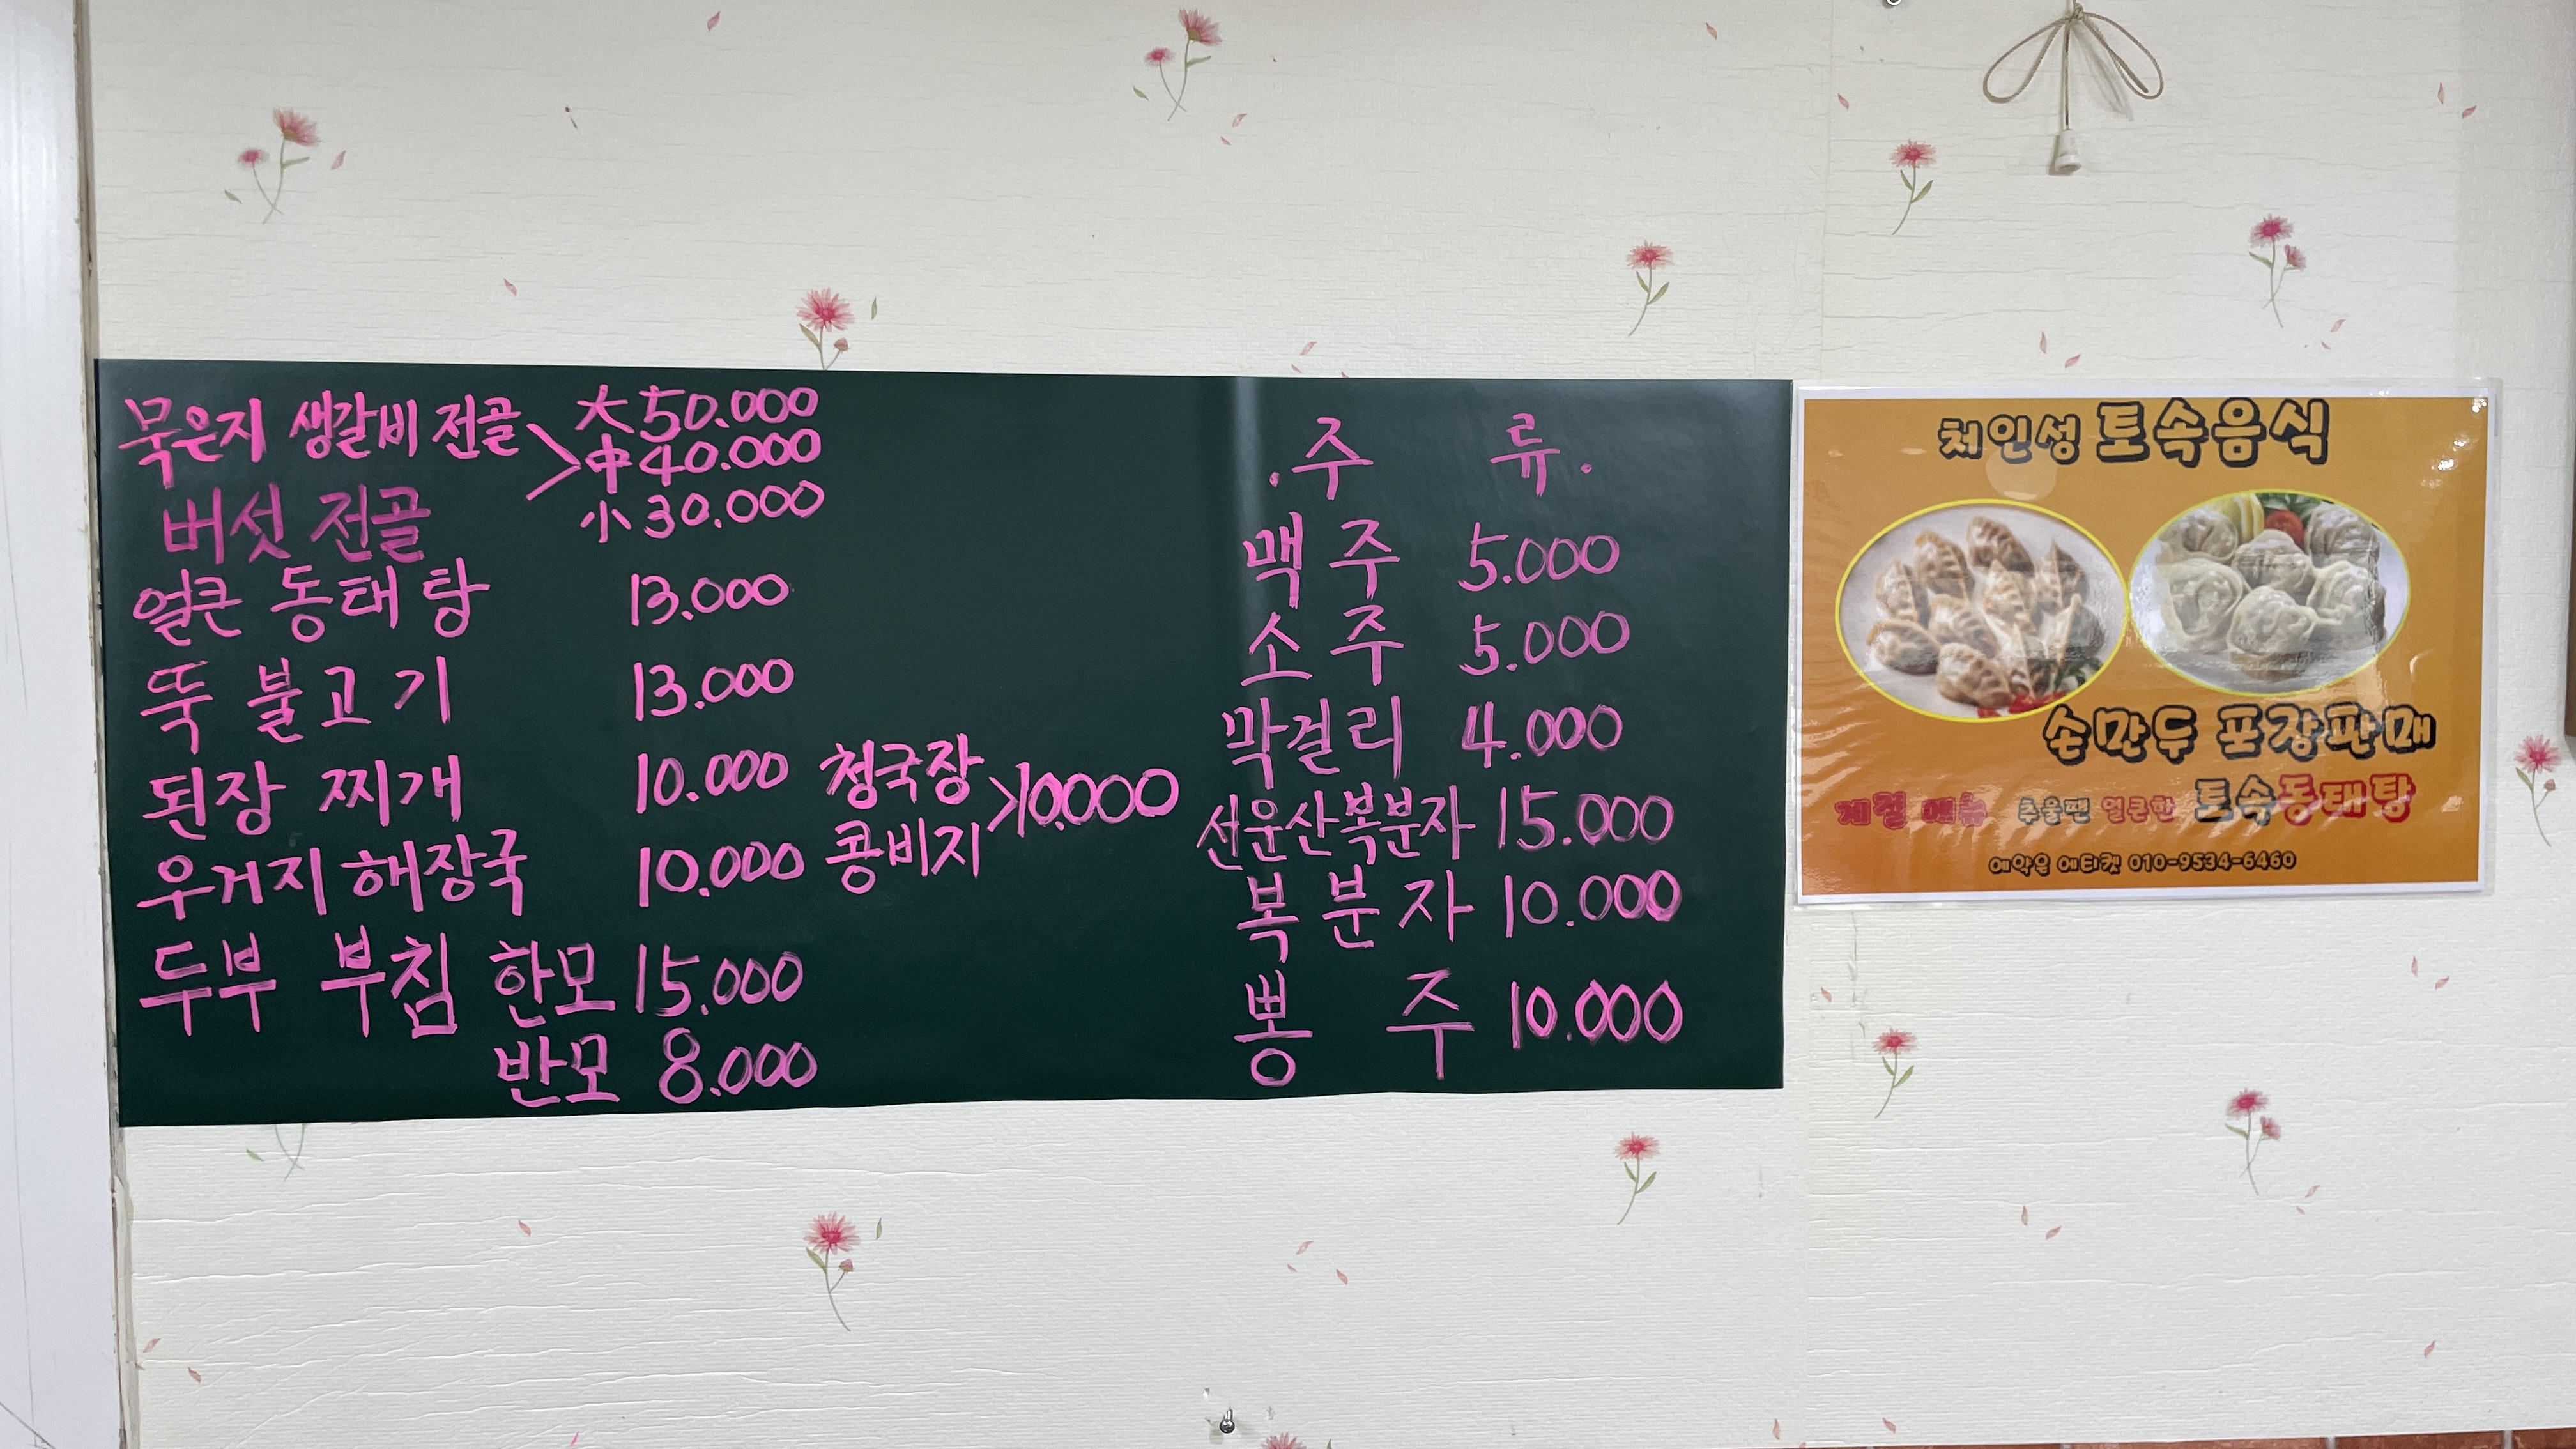 묵은지 생갈비 전골
버섯 전골
大 50.000
中 40.000
小 30.000
얼큰 동태탕 13.000
뚝 불고기 13.000
된장 찌개 10.000
우거지 해장국 10.000
청국장
콩비지
10.000
두부 부침 한모 15.000
반모 8.000
.주 류.
맥주 5.000
소주 5.000
막걸리 4.000
선운산복분자 15.000
복분자 10.000
뽕 주 10.000
처인성 토속음식
손만두 포장판매
계절 메뉴 추울땐 얼큰한 토속동태탕
예약은 에티켓 010-9534-6460